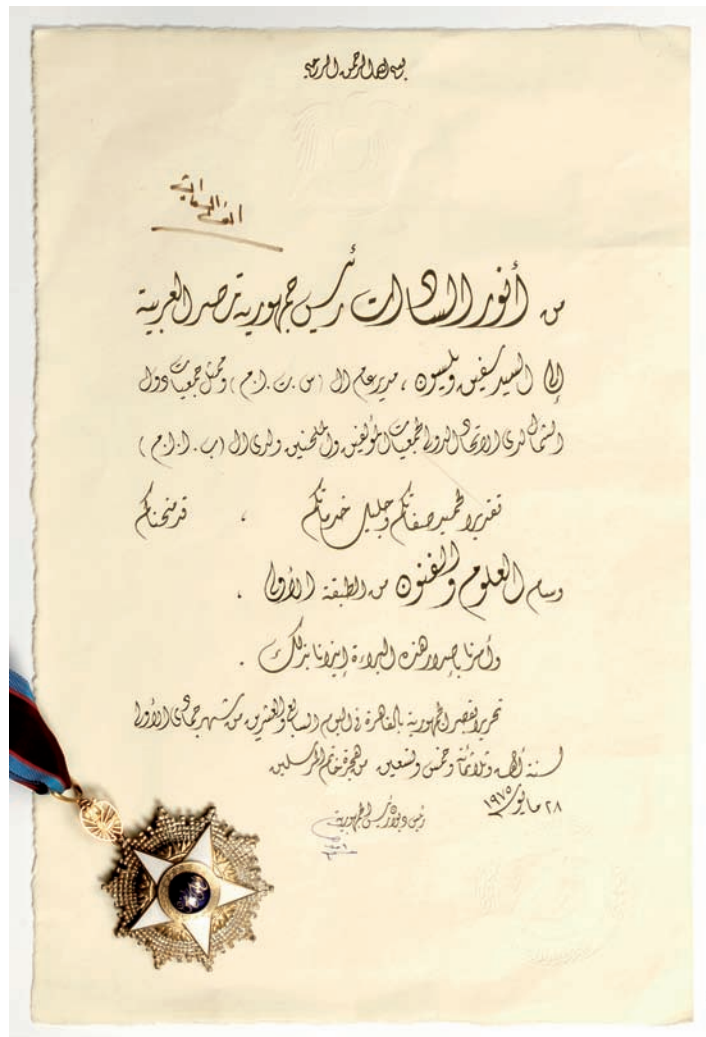 بسم الله الرحمن الرحيم
أنور السادات
من أنور السادات رئيس جمهورية مصر العربية
إلى السيد سفين ويلسون ، مدير عام ال (س . ت . ا . م) وممثل جمعيات دول
الشمال لدى الاتحاد الدولى لجمعيات المؤلفين والملحنين ولدى ال (ب . ا . ا . م)
تقديرا لحميد صفاتكم وجليل خدماتكم ، قد منحناكم
وسام العلوم والفنون من الطبقة الأولى .
وأمرنا بإصدار هذه البراءة إيذانا بذلك .
تحريرا بقصر الجمهورية بالقاهرة فى اليوم السابع والعشرين من شهر جمادى الأولى
لسنة ألف وثلاثمائة وخمس وتسعين من هجرة خاتم المرسلين
٢٨ مايو ١٩٧٥
رئيس ديوان رئيس الجمهورية